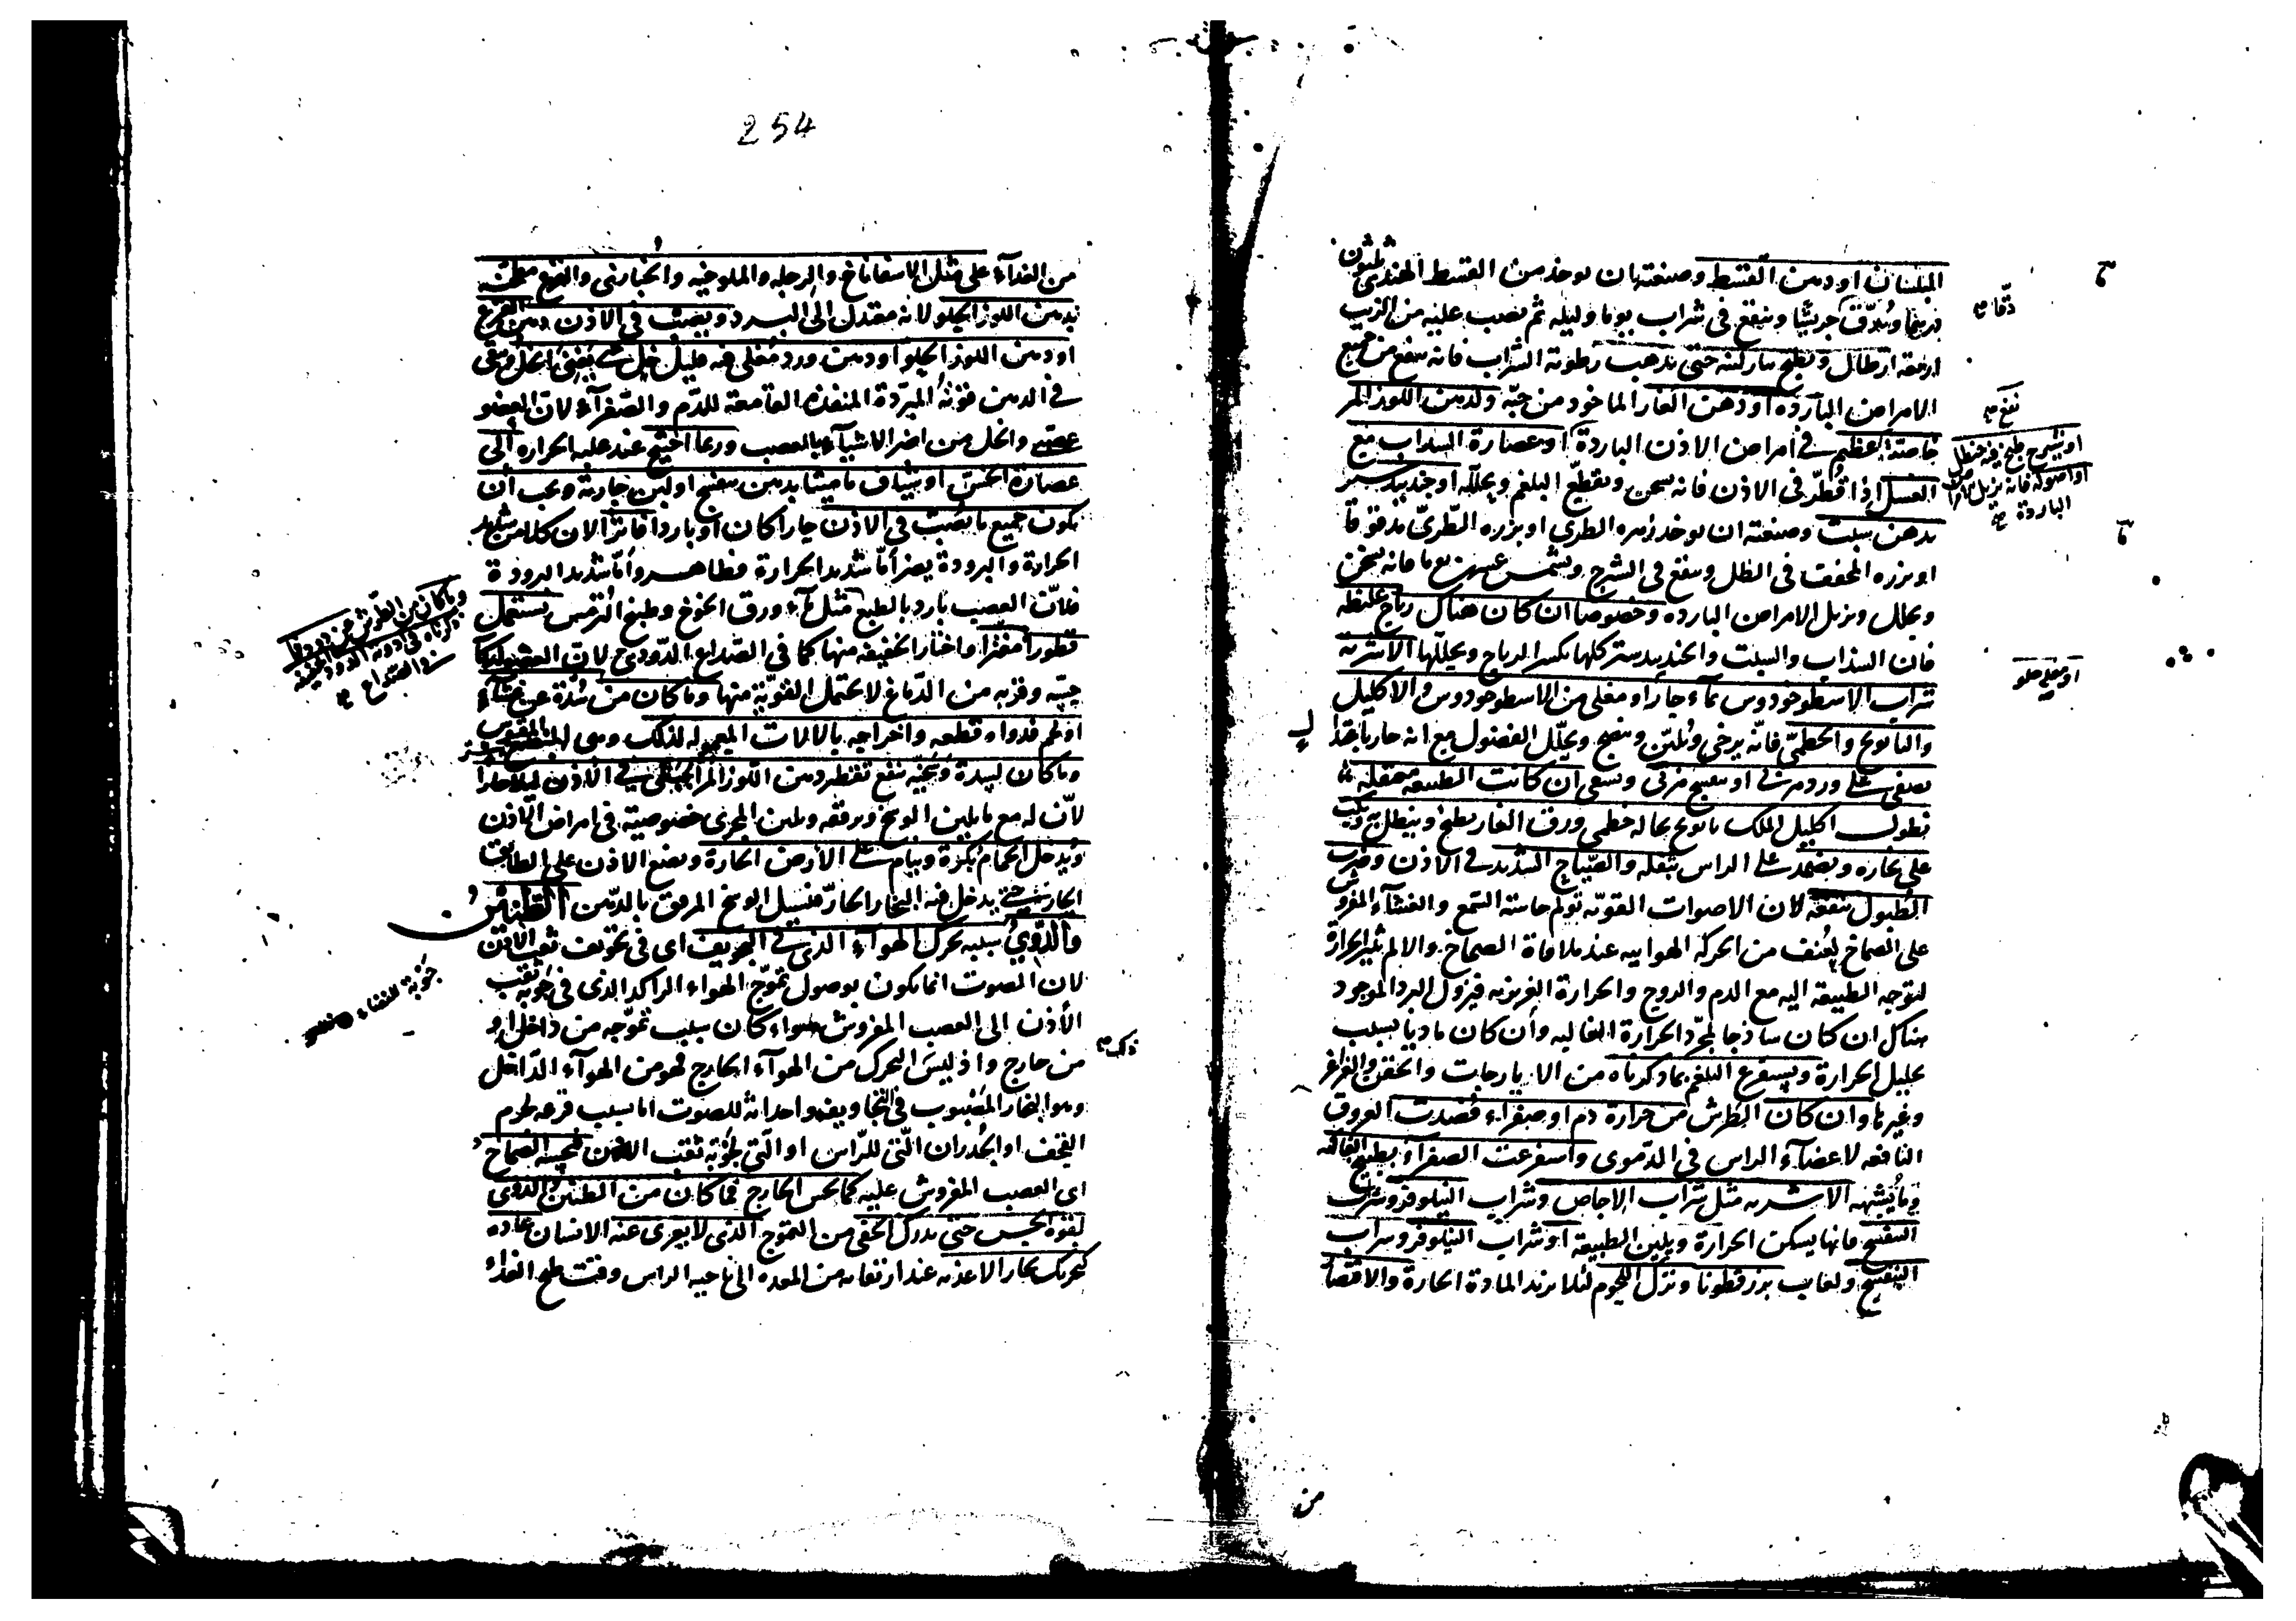 البلسان او دهن القسط وصنعته بان يوخذ من القسط الهندى ثلثون
درهما ويدق جريشا وينقع فى شراب يوما وليله ثم يصب عليه من الزيت
اربعة ارطال ويطبخ بنار لينه حتى يذهب رطوبة الشراب فانه ينفع من جميع
الامراض البارده او دهن الغار الماخوذ من حبه ولدهن اللوز المر
خاصية عظيمه فى امراض الاذن الباردة او عصارة السداب مع
العسل اذا قطر فى الاذن فانه يسخن ويقطع البلغم ويحلله او جندبيدستر
بدهن شبث وصنعته ان يوخذ زهره الطرى او بزره الطرى مدقوقا
او بزره المجفف فى الظل وينقع فى الشيرج ويشمس عشرين يوما فانه يسخن
ويحلل ويزيل الامراض البارده وخصوصا ان كان هناك رياح غليظه
فان السذاب والشبث والجندبيدستر كلها يكسر الرياح ويحللها الاشربه
شراب الاسطوخودوس بماء حار او مغلى من الاسطوخودوس والاكليل
والبابونج والخطمى فانه يرخى ويلين وينضج ويحلل الفضول مع انه حار باعتدال
يصفى على ورد مربى او بنفسج مربى ويسقى ان كانت الطبيعه معتقله
نطول اكليل الملك بابونج نخاله خطمى ورق الغار يطبخ وينطل به ويكب
على بخاره ويضمد على الراس بثفله والصياح الشديد فى الاذن وضرب
الطبول ينفعه لان الاصوات القويه تولم حاسة السمع والغشاء المفروش
على الصماخ لعنف من الحركه الهوائيه عند ملاقاة الصماخ والالم يثير الحرارة
لتوجه الطبيعة اليه مع الدم والروح والحرارة الغريزيه فيزول البرد الموجود
هناك ان كان ساذجا لمجرد الحرارة الغاليه وان كان ماديا بسبب
تحليل الحرارة ويستفرغ البلغم بما ذكرناه من الايارجات والحقن والغراغر
وغيرها وان كان الطرش من حرارة دم او صفراء فصدت العروق
النافعه لاعضاء الراس فى الدموى واستفرغت الصفراء بطبيخ الفاكهه
وما يشبهه الاشربه مثل شراب الاجاص وشراب النيلوفر وشراب
البنفسج فانها يسكن الحرارة ويلين الطبيعة او شراب النيلوفر وشراب
البنفسج ولعاب بزر قطونا وترك اللحوم لئلا يزيد المادة الحارة والاقتصار
دقا صح
نفع صح
او شيرج طبخ فيه حنظل
او اصوله فانه يزيل الامراض
الباردة صح
او مغلى حلو
من
254
من الغذاء على مثل الاسفاناخ والرجله والملوخيه والخبازى والقرع مطجنه
بدهن اللوز الحلو لانه معتدل الى البرد ويصب فى الاذن دهن القرع
او دهن اللوز الحلو او دهن ورد مغلى فيه قليل خل حتى يفنى الخل ويبقى
فى الدهن قوته المبردة المنفذه القامعة للدم والصفراء لان العضو
عصبى والخل من اضر الاشياء بالعصب وربما احتيج عند غلبه الحراره الى
عصارة الخس او شياف ماميثا بدهن بنفسج او لبن جارية ويجب ان
يكون جميع ما يصب فى الاذن حارا كان او باردا فاترا لان كلا من شديد
الحرارة والبرودة يضر اما شديد الحرارة فظاهر واما شديد البرودة
فلان العصب بارد بالطبع مثل ماء ورق الخوخ وطبيخ الترمس يستعمل
قطورا مفترا واختار الخفيفه منها كما فى الصداع الدودى لان العضو لذكاء
حسه وقربه من الدماغ لا يحتمل القوية منها وما كان من سدة عن غشاء
او لحم فدواه قطعه واخراجه بالالات المعموله لذلك وهى المبضع المقوس
وما كان لسدة وسخيه ينفع تقطير دهن اللوز المر الجبلى فى الاذن ليلا حارا
لان له مع ما يلين الوسخ ويرققه ويلين المجرى خصوصية فى امراض الاذن
ويدخل الحمام بكرة وينام على الارض الحارة ويضع الاذن على الطابق
الحار حتى يدخل فيه البخار الحار فيسيل الوسخ المرقق بالدهن الطنين
والدوى سببه تحرك الهواء الذى فى التجويف اى فى تجويف ثقب الاذن
لان الصوت انما يكون بوصول تموج الهواء الراكد الذى فى جوبة ثقب
الاذن الى العصب المفروش سواء كان سبب تموجه من داخل او
من خارج واذ ليس التحرك من الهواء الخارج فهو من الهواء الداخل
وهو البخار المصبوب فى التجاويف واحداثه للصوت اما بسبب قرعه لجرم
القحف او الجدران التى للراس او التى لجوبة ثقب الاذن فيحسه الصماخ
اى العصب المفروش عليه كما يحس الخارج فما كان من الطنين والدوى
لقوه الحس حتى يدرك الخفى من التموج الذى لا يعرى عنه الانسان عادة
كتحريك بخار الاغذيه عند ارتفاعه من المعده الى ناحيه الراس وقت طبخ الغذاء
وما كان من الطرش عن دود فما
ذكرناه فى ادوية الدود الخفيفه
فى الصداع صح
جوبة الفضاء
ذلك صح